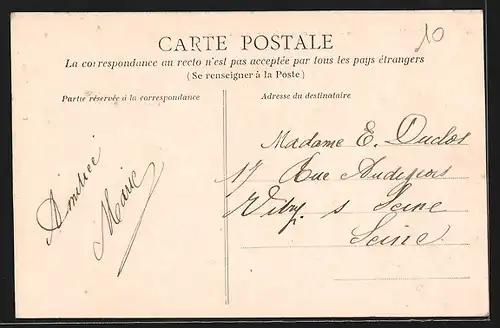 10
CARTE POSTALE
La correspondance au recto n'est pas acceptée par tous les pays étrangers
(Se renseigner à la Poste)
Partie réservée à la correspondance
Adresse du destinataire
Amitiés
Marie
Madame E. Duclos
17 Rue Audigeois
Vitry s Seine
Seine